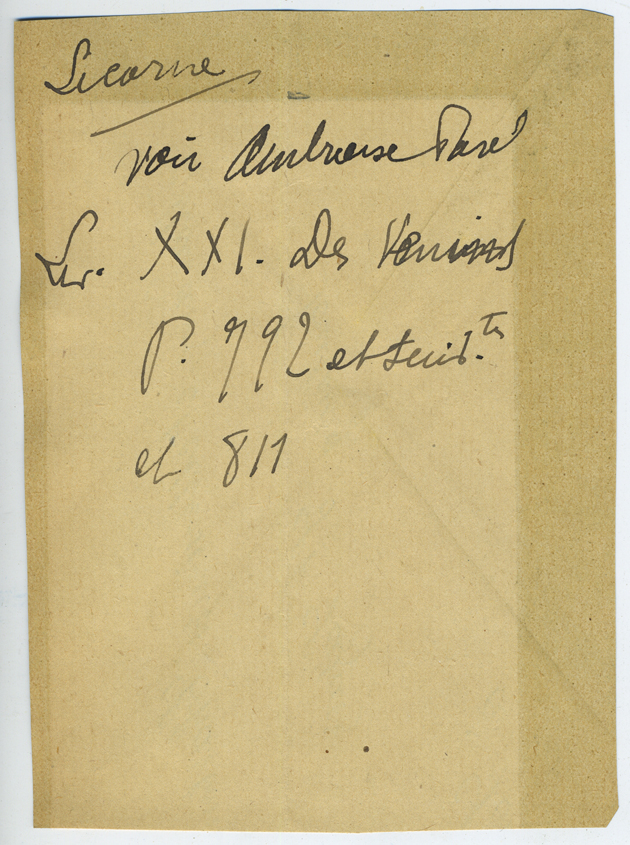 Licorne
voir Ambroise Paré
Liv. XXI. Des Venins
P. 792 et suiv.tes
et 811